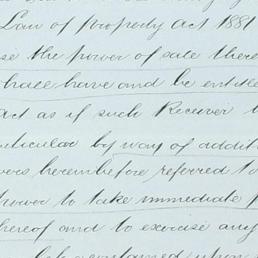 Law of Property Act 1881
se the power of sale there
shall have and be entitle
act as if such Receiver
ticular by way of additi
vers hereinbefore referred to
power to take immediate
hereof and to exercise any
contained upon